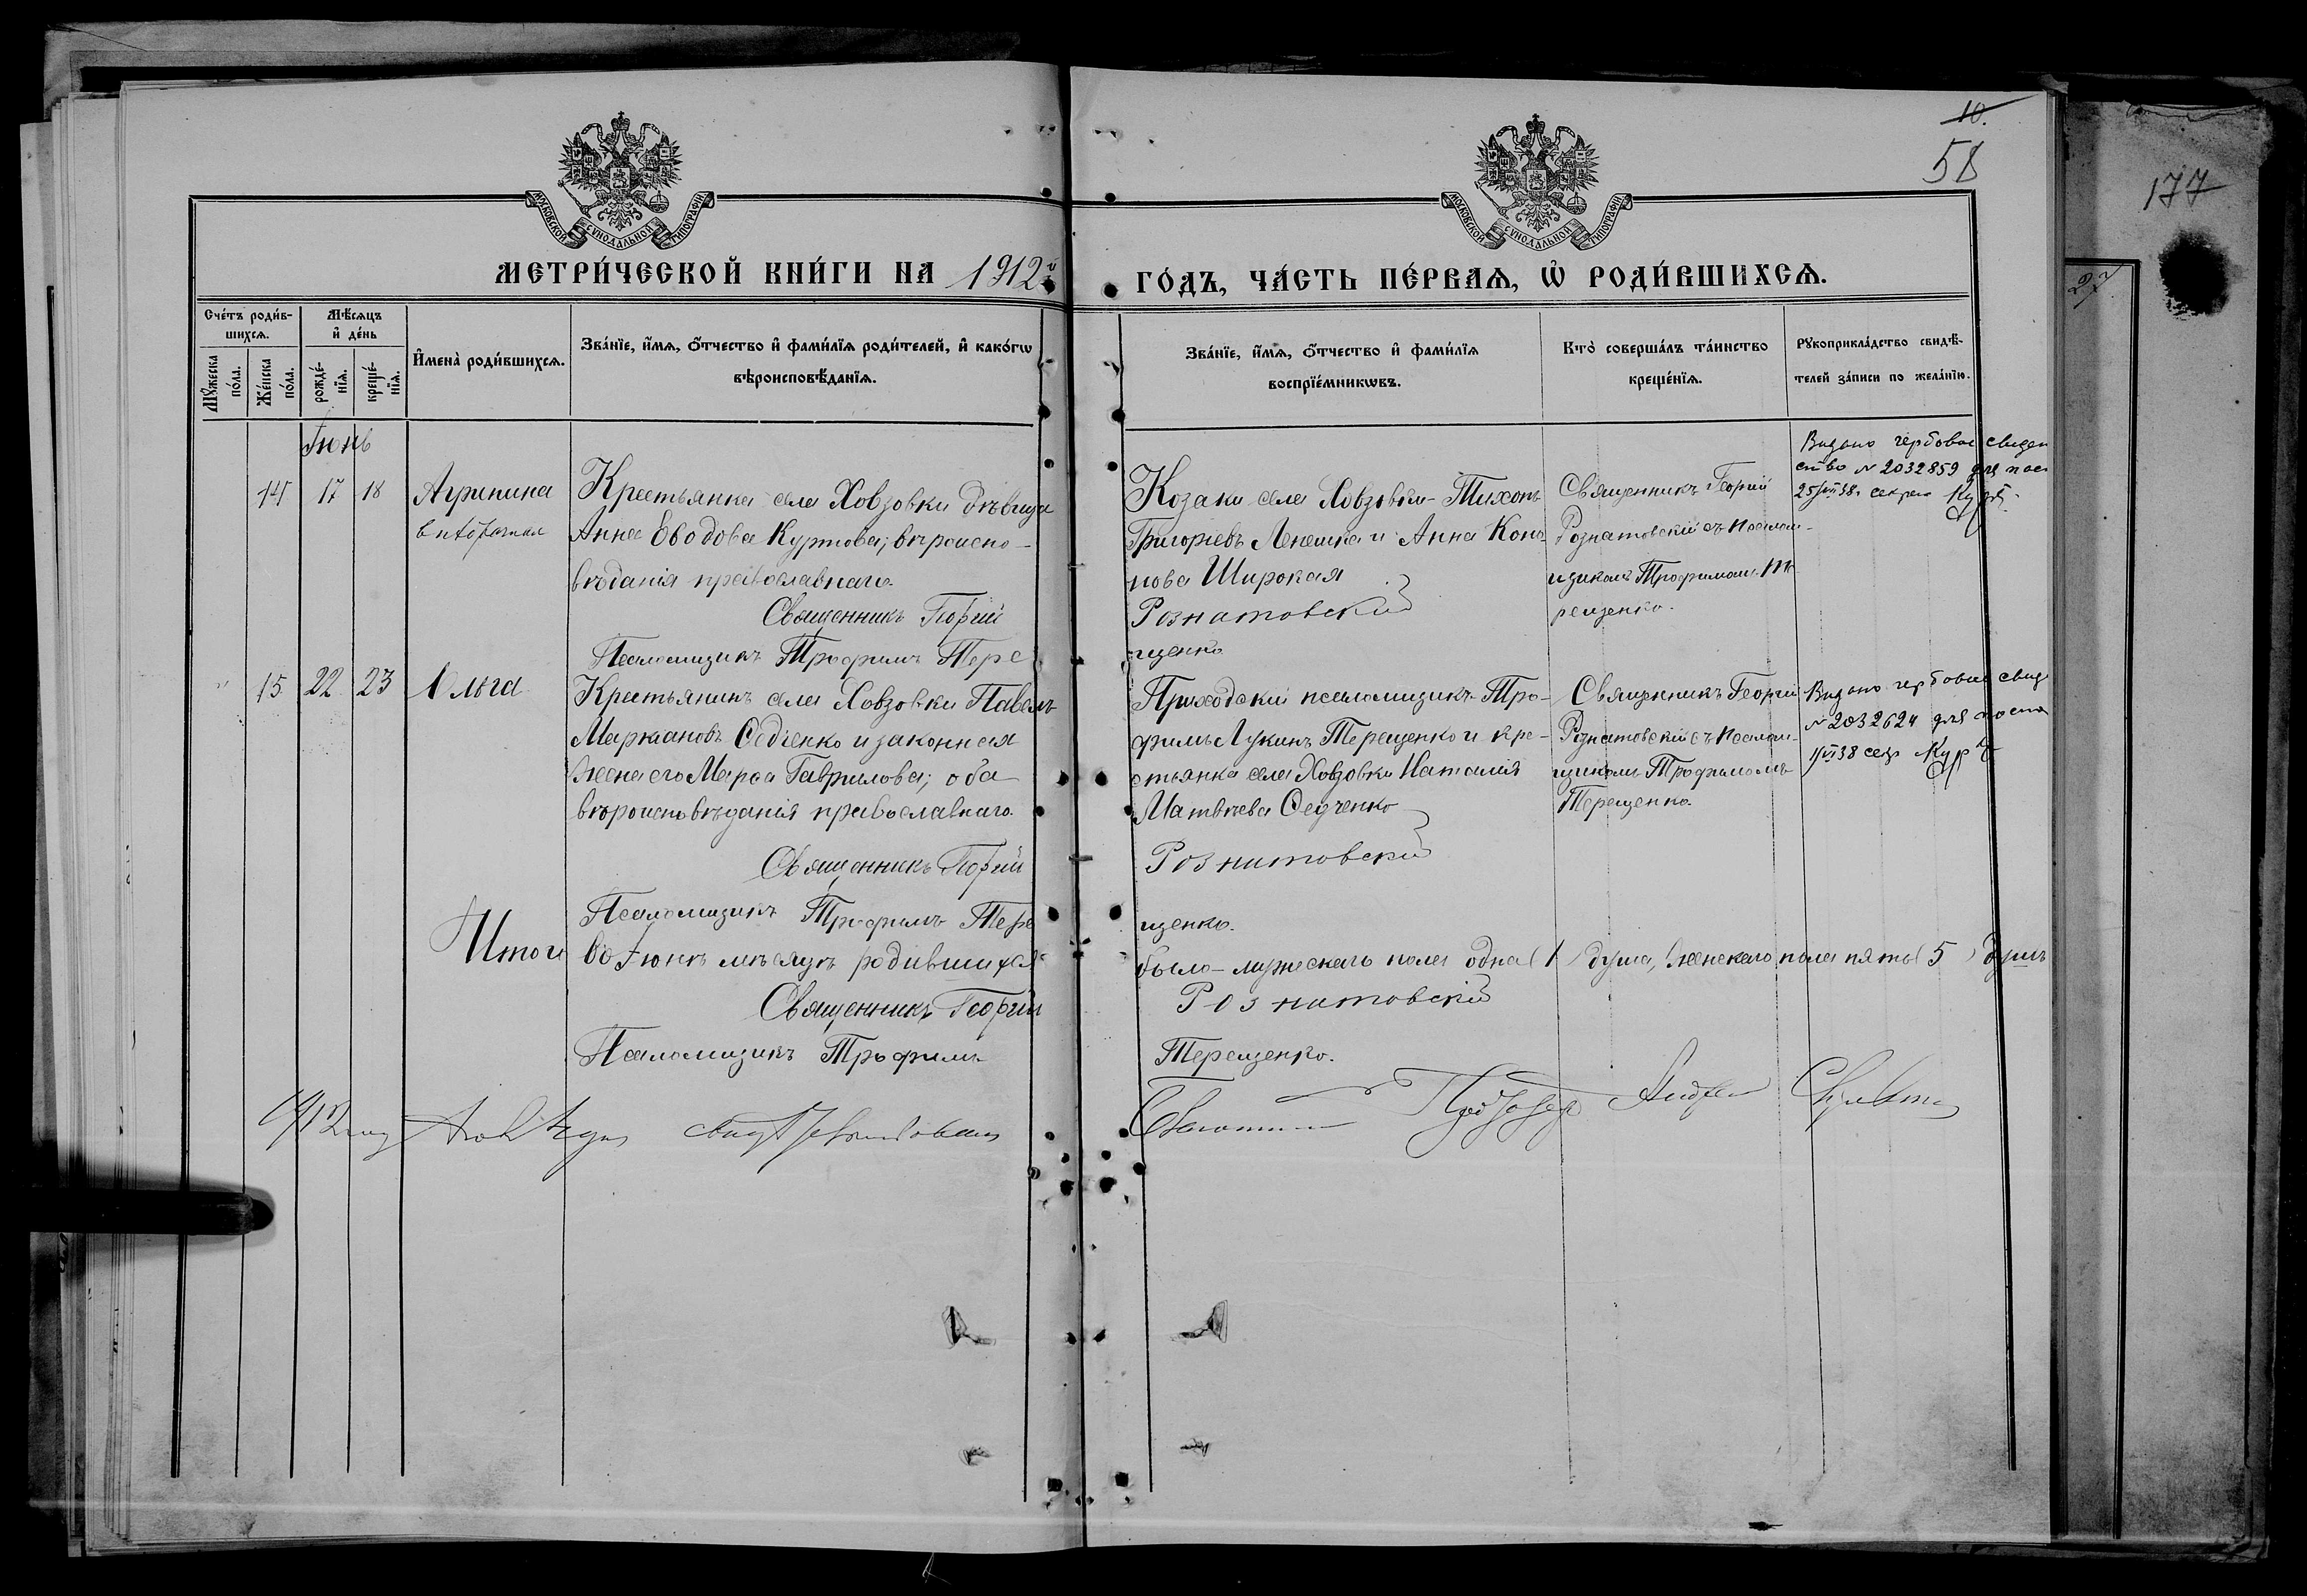 10.
58
177
27
МОСКОВСКОЙ СѴНОДАЛЬНОЙ ТИПОГРАФІИ
МОСКОВСКОЙ СѴНОДАЛЬНОЙ ТИПОГРАФІИ
МЕТРИ́ЧЕСКОЙ КНИ́ГИ НА 1912й
ГО́ДЪ, ЧА́СТЬ ПЕ́РВАѦ, Ѡ҆ РОДИ́ВШИХСѦ.
Сче́тъ роди́в-
шихсѧ.
Мѣ́сѧцъ
и҆ де́нь
Мꙋ́жеска
по́ла.
Же́нска
по́ла.
рожде́-
нїѧ.
креще́-
нїѧ.
И҆мена̀ роди́вшихсѧ.
Зва́нїе, и҆́мѧ, ѻ҆́тчество и҆ фами́лїѧ роди́телей, и҆ како́гѡ
вѣроисповѣ́данїѧ.
Зва́нїе, и҆́мѧ, ѻ҆́тчество и҆ фами́лїѧ
воспрїе́мникѡвъ.
Кто̀ соверша́лъ та́инство
креще́нїѧ.
Рꙋкоприкла́дство свидѣ́-
телей за́писи по жела́нїю.
Іюнь
14 17 18 Агрипина
Крестьянка села Ховзовки дѣвица
Анна Еводова Куртова; вѣроиспо-
вѣданія православнаго.
Священникъ Георгій
Псаломщикъ Трофимъ Тере
Козаки села Ховзовки Тихонъ
Григорьевъ Лепешка и Анна Коно-
нова Широкая
Рознатовскій
щенко
Священникъ Георгій
Рознатовскій съ псалом-
щикомъ Трофимомъ Те
рещенко.
Видано гербове свідоц
ство № 2032859 для пас
25/VII 38. секрет
15 22 23 Ольга
Крестьянинъ села Ховзовки Павелъ
Маркіановъ Седченко и законная
жена его Марѳа Гаврилова; оба
вѣроисповѣданія православнаго.
Священникъ Георгій
Псаломщикъ Трофимъ Тере
Приходскій псаломщикъ Тро-
фимъ Лукинъ Терещенко и кре-
стьянка села Ховзовки Наталія
Матвѣева Седченко
Рознатовскій
щенко.
Священникъ Георгій
Рознатовскій съ псалом-
щикомъ Трофимомъ
Терещенко.
Видано гербове свід
№ 2032624 для
38 секр
Итого во Іюнѣ мѣсяцѣ родившихся
было мужескаго пола одна (1) душа, женскаго пола пять (5) душъ
Священникъ Георгій
Рознатовскій
Псаломщикъ Трофимъ
Терещенко.